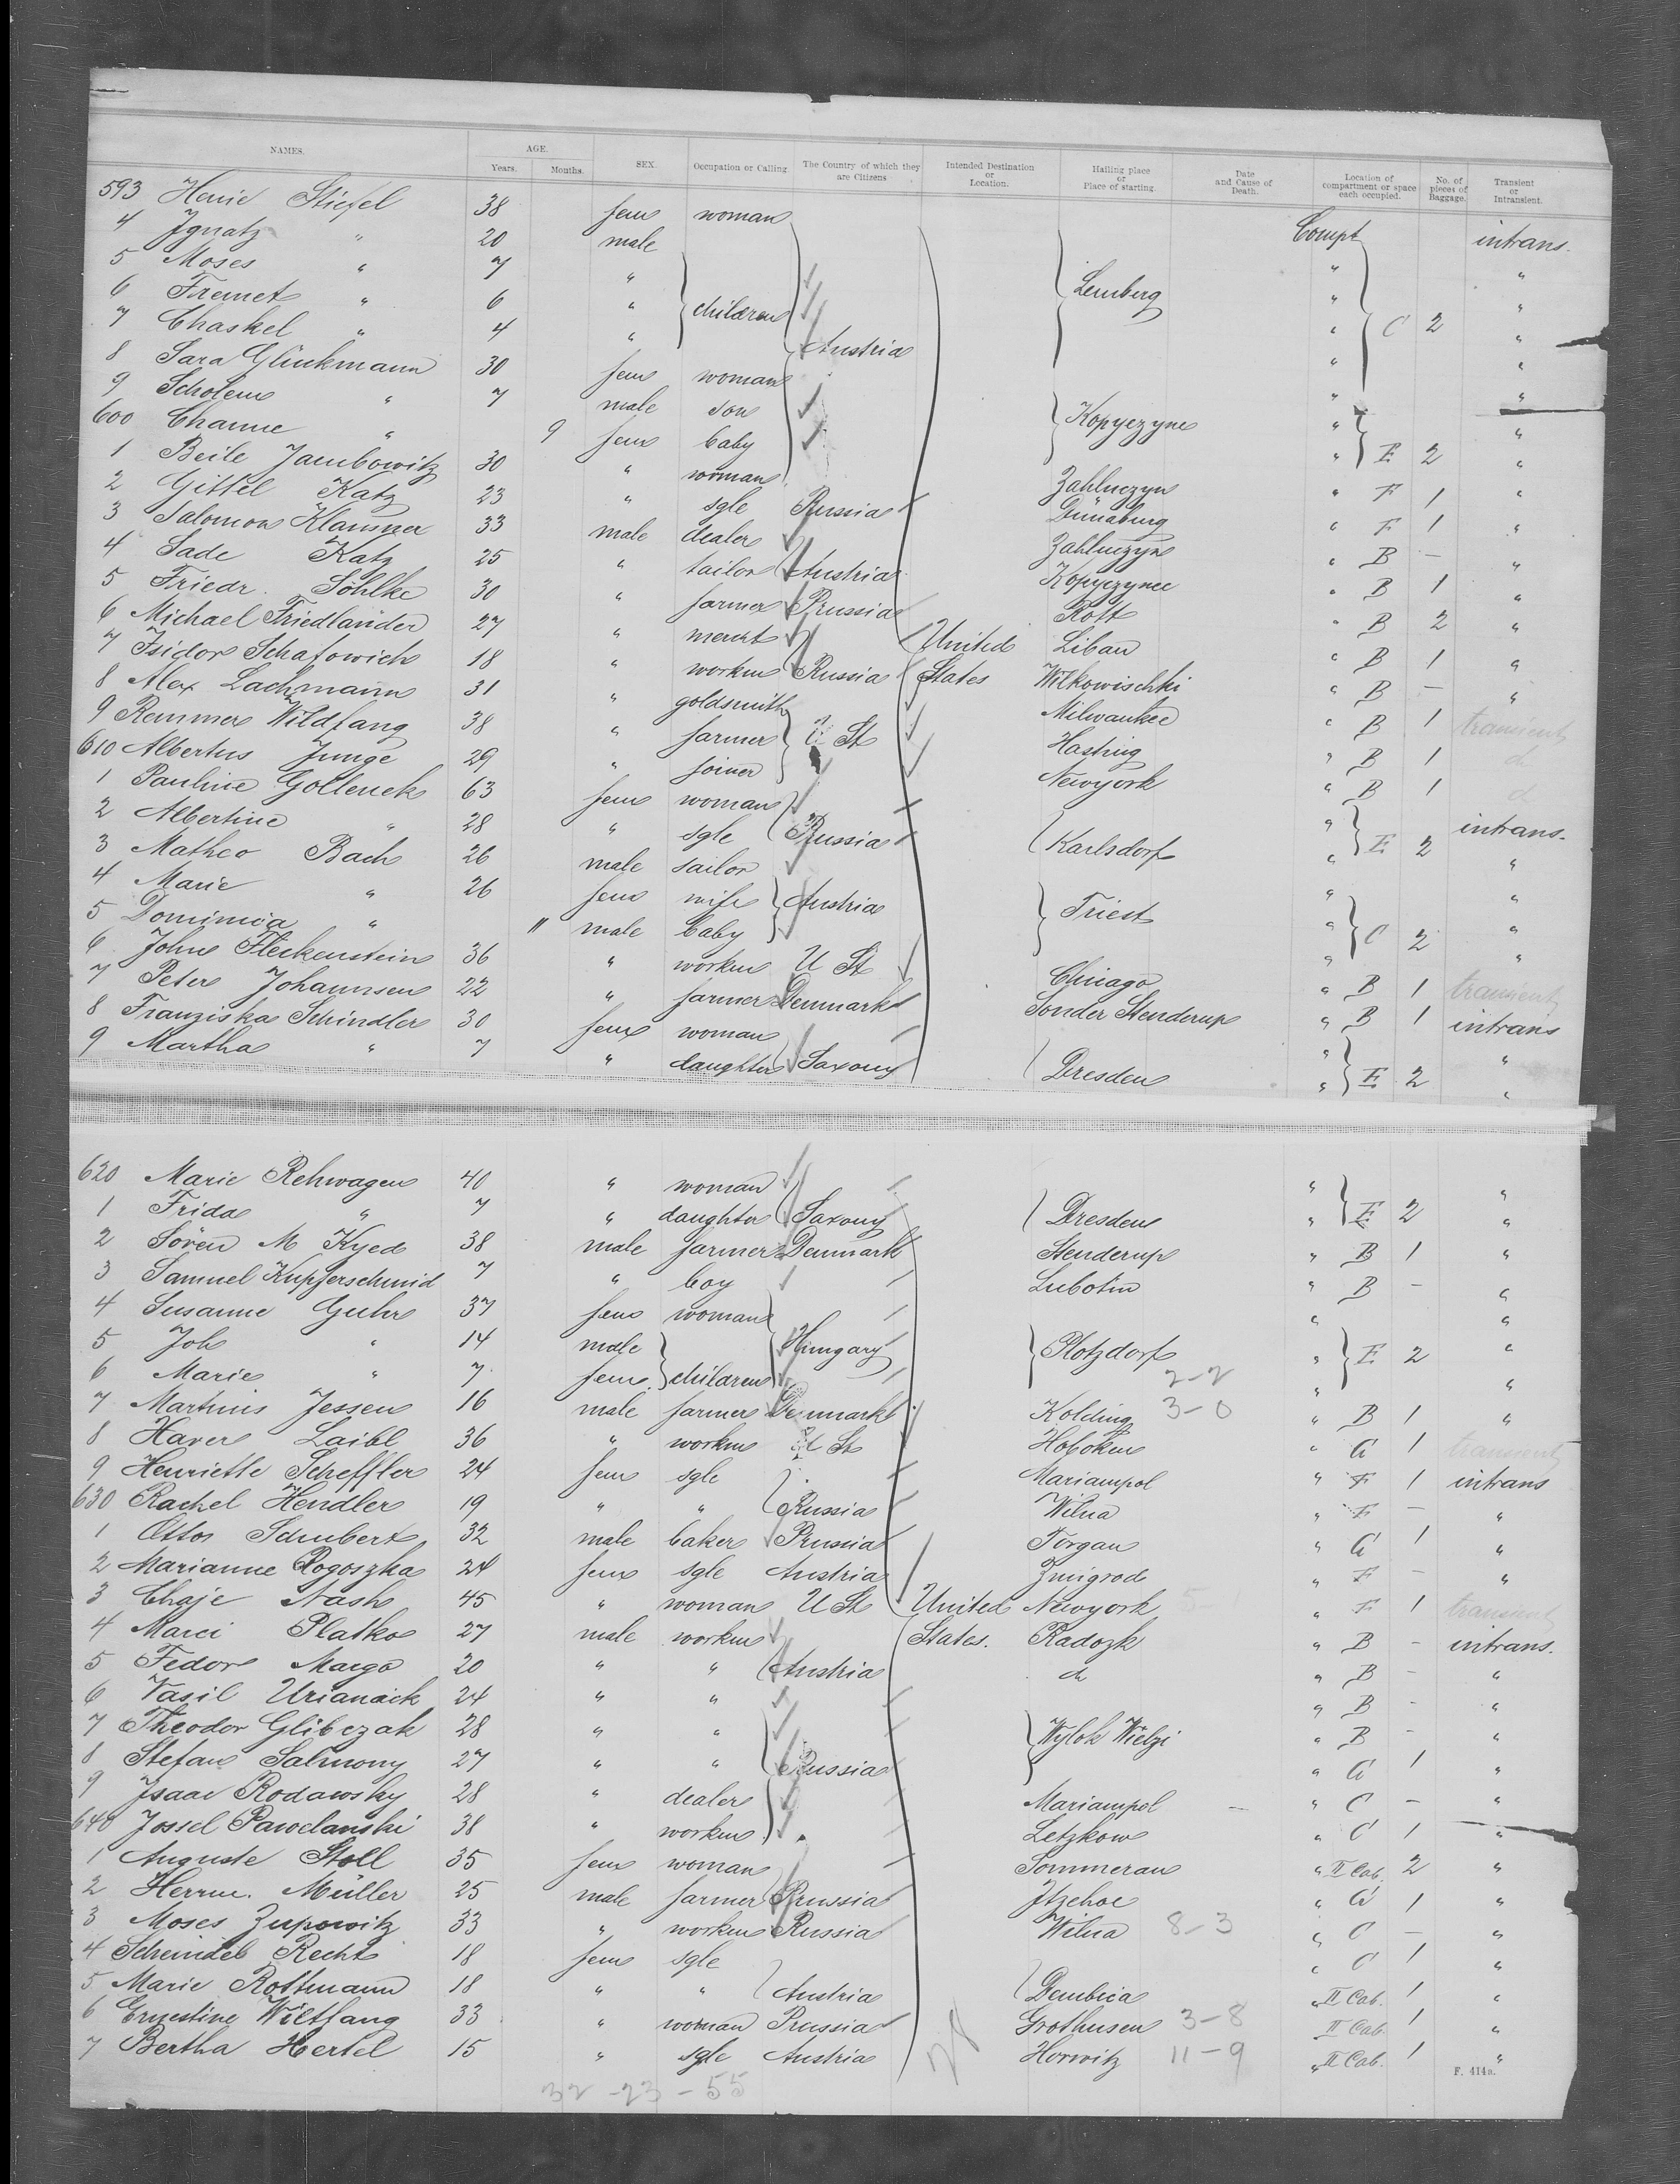 NAMES. AGE. SEX. Occupation or Calling. The Country of which they are Citizens Intended Destination or Location. Hailing place or Place of starting. Date and Cause of Death. Location of compartment or space each occupied. No. of pieces of Baggage. Transient or Intransient.
Years. Months.
593 Henie Stiefel 38 fem woman Compt intrans.
4 Ignatz " 20 male " "
5 Moses " 7 " Lemberg " "
6 Fremet " 6 " children " C 2 "
7 Chaskel " 4 " Austria " "
8 Sara Glückmann 30 fem woman " "
9 Scholem " 7 male son Kopyczyne " "
600 Channe " 9 fem baby " E 2 "
1 Beile Jambowitz 30 " woman Zahluczyn " F 1 "
2 Gittel Katz 23 " sgle Russia Dünaburg " F 1 "
3 Salomon Klausner 33 male dealer Zahluczyn " B - "
4 Sade Katz 25 " tailor Austria Kopyczynce " B 1 "
5 Friedr. Söhlke 30 " farmer Prussia Rott " B 2 "
6 Michael Friedländer 27 " mercht United Libau " B 1 "
7 Isidor Schafowich 18 " workm Russia States Wilkowischki " B - "
8 Alex Lachmann 31 " goldsmith Milwaukee " B 1 transient
9 Remmer Wildfang 38 " farmer U St Hasting " B 1 d
610 Albertus Junge 29 " joiner Newyork " B 1 d
1 Pauline Gollenek 63 fem woman " intrans.
2 Albertine " 28 " sgle Russia Karlsdorf " E 2 "
3 Matheo Bach 26 male sailor " "
4 Marie " 26 fem wife Austria Triest " "
5 Dominica " 11 male baby " C 2 "
6 John Fleckenstein 36 " workm U St Chicago " B 1 transient
7 Peter Johannsen 22 " farmer Denmark Sonder Stenderup " B 1 intrans
8 Franziska Schindler 30 fem woman " "
9 Martha " 7 " daughter Saxony Dresden " E 2 "
620 Marie Rehwagen 40 " woman " "
1 Frida " 7 " daughter Saxony Dresden " E 2 "
2 Sören M Kyed 38 male farmer Denmark Stenderup " B 1 "
3 Samuel Kupferschmid 7 " boy Lubotin " B - "
4 Susanne Guhr 37 fem woman " "
5 Joh " 14 male Hungary Plotzdorf " E 2 "
6 Marie " 7 fem children 2-2 " "
7 Martinis Jessen 16 male farmer Denmark Kolding 3-0 " B 1 "
8 Haver Laibl 36 " workm U St Hoboken " G 1 transient
9 Henriette Scheffler 24 fem sgle Mariampol " F 1 intrans
630 Rachel Hendler 19 " " Russia Wilna " F - "
1 Otto Schubert 32 male baker Prussia Torgau " G 1 "
2 Marianne Rogoszka 24 fem sgle Austria Zmigrod " F - "
3 Chaje Nash 45 " woman U St United Newyork " F 1 transient
4 Marci Platko 27 male workm States. Radozk " B - intrans.
5 Fedor Margo 20 " " Austria do " B - "
6 Vasil Urianaick 24 " " " B - "
7 Theodor Glibczak 28 " " Wylok Wielzi " B - "
8 Stefan Salmony 27 " " Russia " G 1 "
9 Isaac Rodawsky 28 " dealer Mariampol - " C - "
640 Jossel Pawelanski 38 " workm Letzkow " C 1 "
1 Auguste Stoll 35 fem woman Sommerau " II Cab. 2 "
2 Herrm. Müller 25 male farmer Prussia Itzehoe " G 1 "
3 Moses Zupowitz 33 " workm Russia Wilna 8-3 " C - "
4 Scheindel Recht 18 fem sgle " C 1 "
5 Marie Rottmann 18 " " Austria Dembica " II Cab. 1 "
6 Ernestine Wiltfang 33 " woman Prussia Grothusen 3-8 II Cab. 1 "
7 Bertha Hertel 15 " sgle Austria Horwitz 11-9 " II Cab. 1 "
32-23-55 F. 414a.